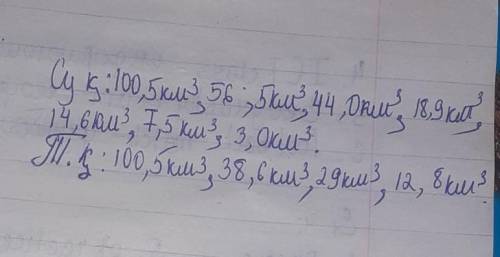 Су қ: 100,5км³, 56,5км³, 44,0км³, 18,9км³,
14,6км³, 7,5км³, 3,0км³.
Т.қ: 100,5км³, 38,6км³, 29км³, 12,8км³.